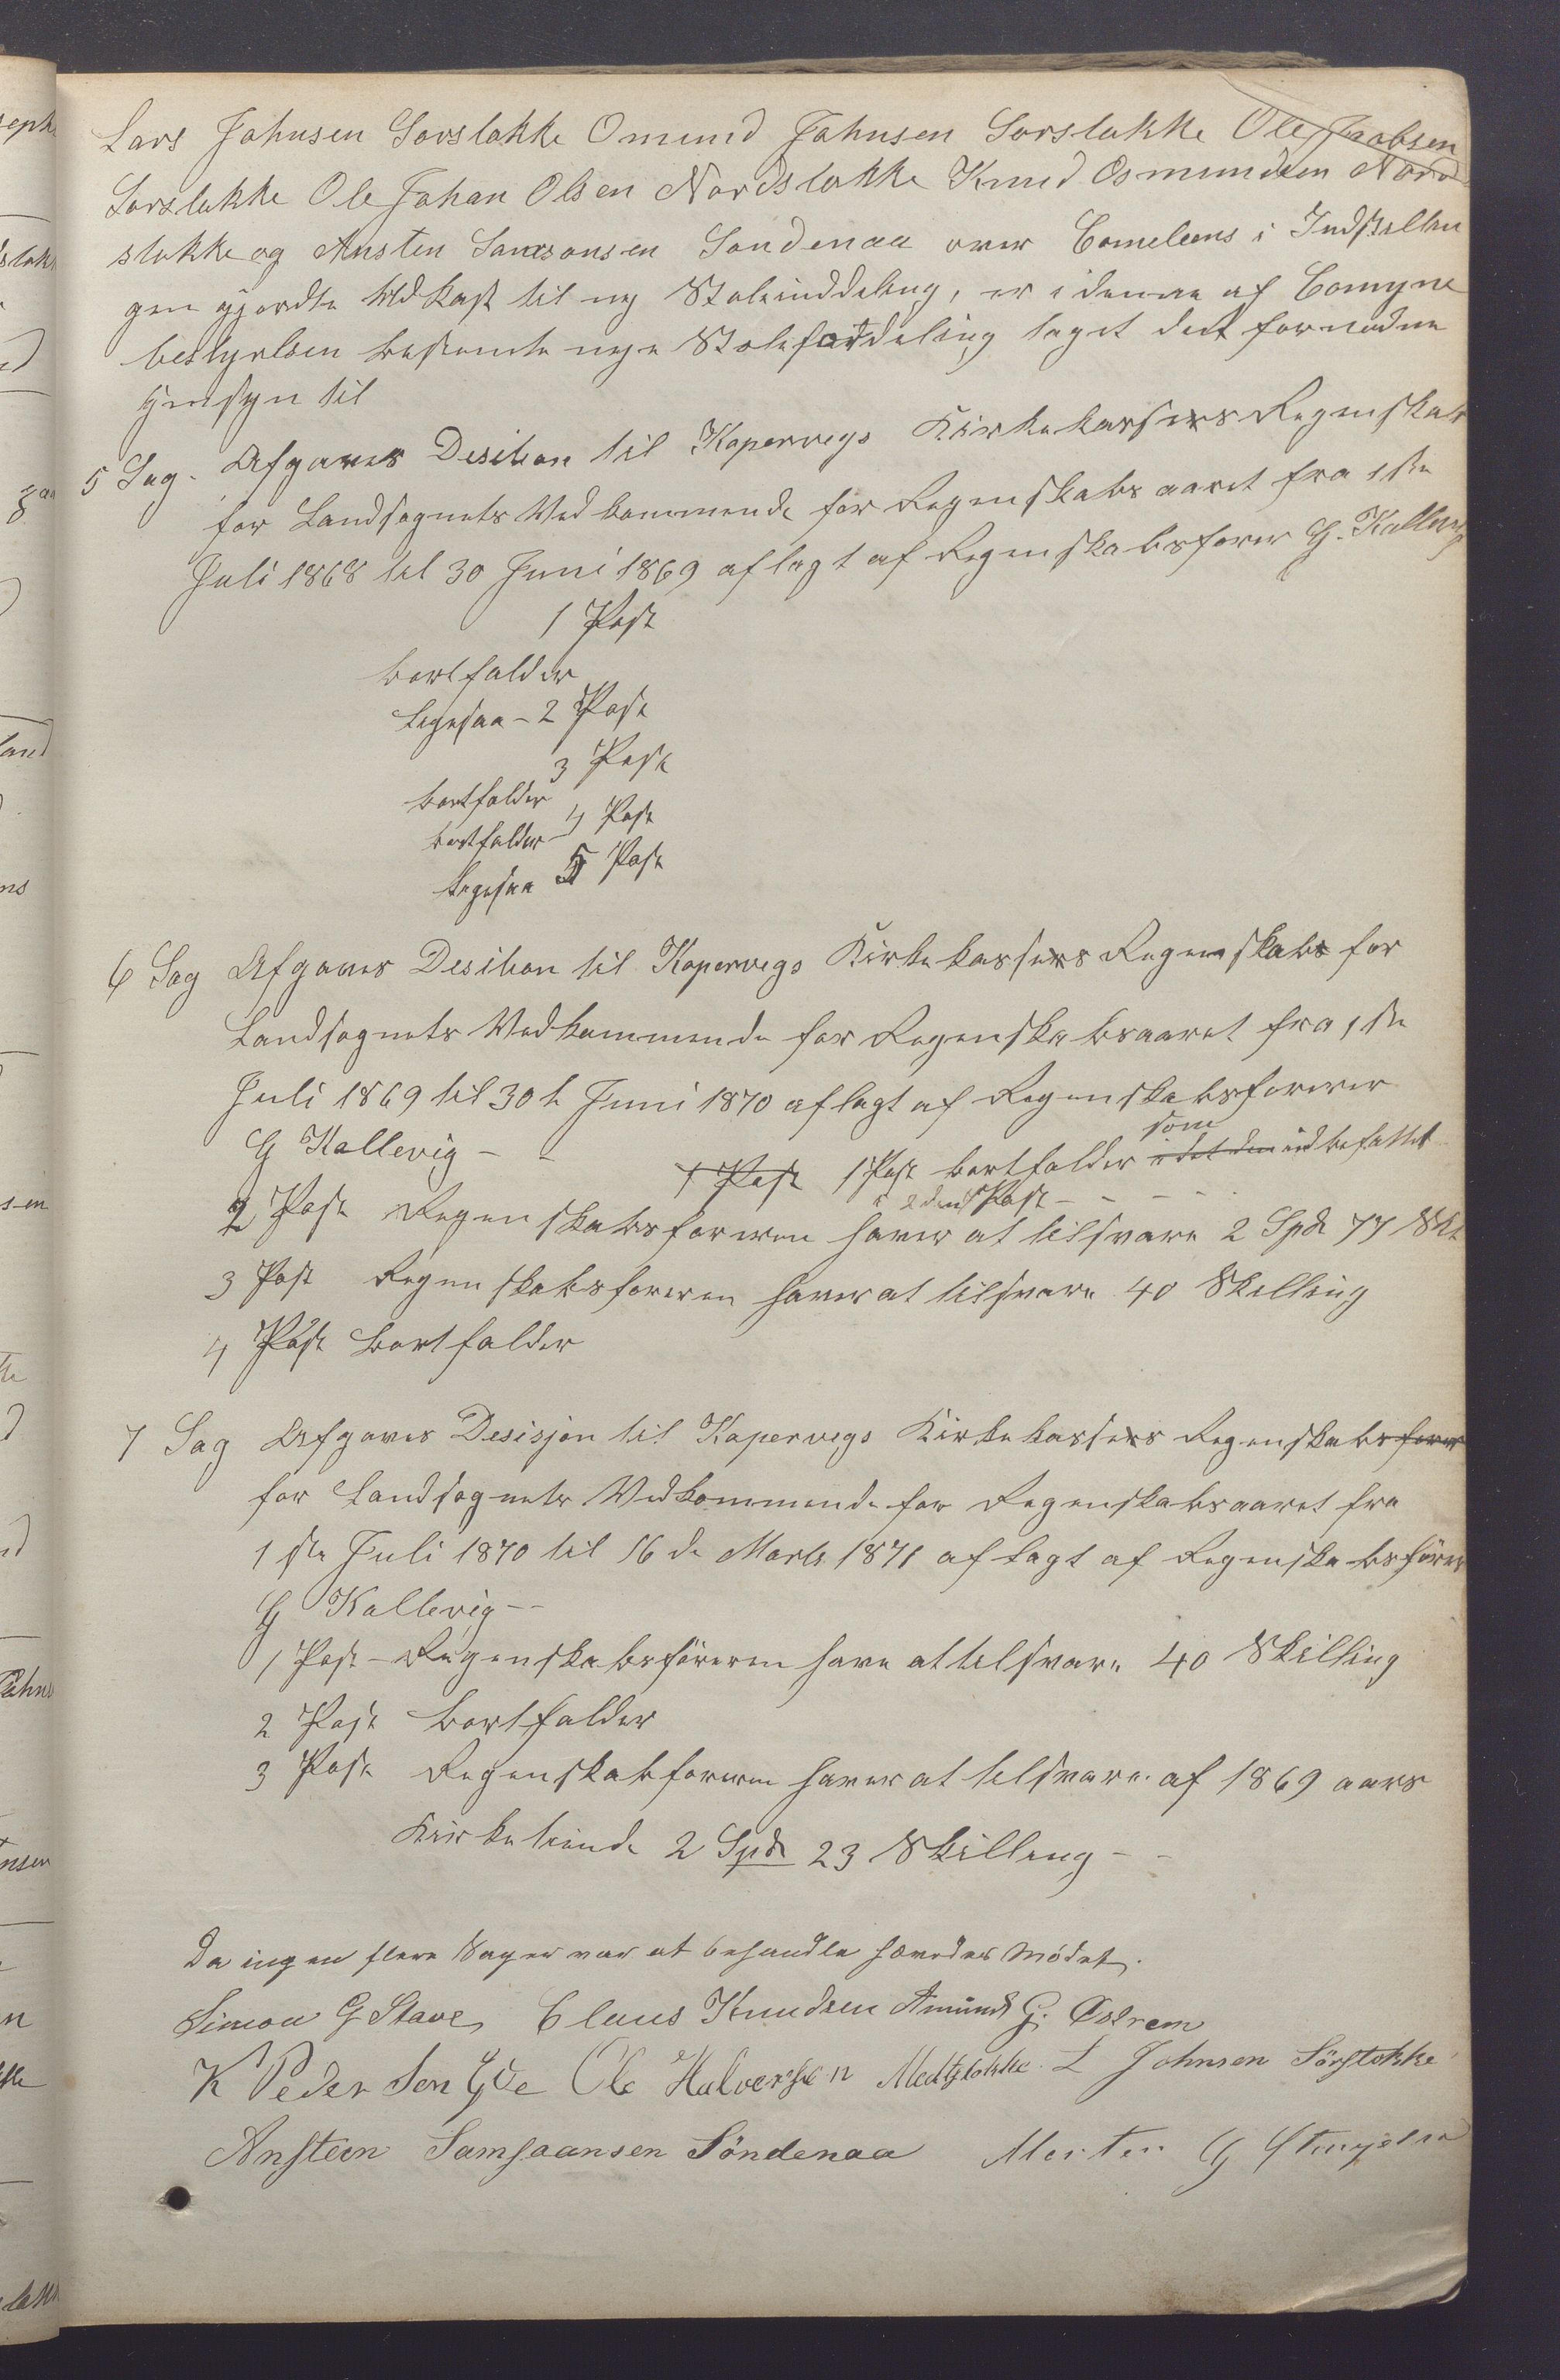 Lars Johnsen Sørstokke Omund Johnsen Sørstokke Ole Jacobsen
Sørstokke Ole Johan Olsen Nordstokke Knud Osmundsen Nord
stokke og Ansten Samsonsen Søndenaa over Cometeens i Indstillin
gen gjordte Udkast til ny Stoleinddeling, er i denne af Comyne
bestyrelsen bestemte nye Stolefordeling taget det fornødne
Hensyn til
5 Sag. Afgaves Desition til Kopervegs Kirkekasses Regenskab
for Landsognets Vedkommende for Regenskabsaaret fra 1ste
Juli 1868 til 30 Juni 1869 aflagt af Regenskabsfører G. Kallevig
1 Post
bortfalder
Ligesaa - 2 Post
3 Post
bortfalder
bortfalder 4 Post
Ligesaa 5 Post
6 Sag Afgaves Desition til Kopervegs Kirkekasses Regenskab for
Landsognets Vedkommende for Regenskabsaaret fra 1ste
Juli 1869 til 30te Juni 1870 aflagt af Regenskabsfører
som
G Kallevig - - 1 Post 1 Post bortfalder i det den indbefattet
i 2den Post - - - -
2 Post Regenskabsføreren haver at tilsvare 2 Spd 77 Sk
3 Post Regenskabsføreren haver at tilsvare 40 Skilling
4 Post bortfalder
7 Sag Afgaves Desisjon til Kopervegs Kirkekasses Regenskabsfører
for Landsognets Vedkommende for Regenskabsaaret fra
1ste Juli 1870 til 16de Marts 1871 aflagt af Regenskabsfører
G Kallevig --
1 Post - Regenskabsføreren have at tilsvare 40 Skilling
2 Post bortfalder
3 Post Regenskabføreren haver at tilsvare af 1869 aars
Kirketiende 2 Spd 23 Skilling - -
Da ingen flere Sager var at behandle hævedes Mödet.
Simon G Stave, Claus Knudsen Amund G. Østrem
K Peder Sen Yde Ole Halversen Medtstokke L Johnsen Sörstokke
Anstein Samsaansen Söndenaa Morten G